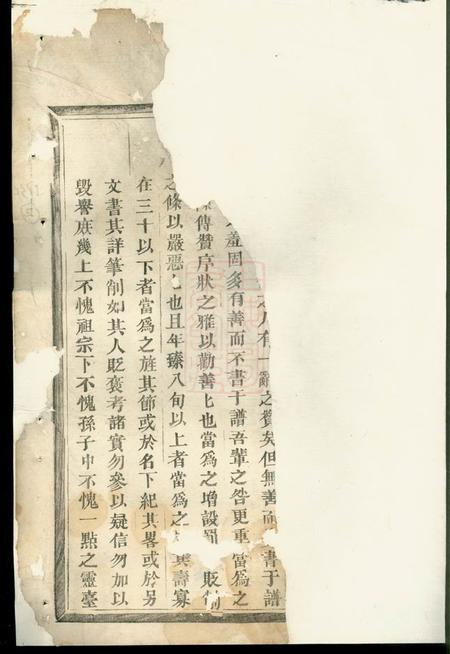 之人有一辭之贊矣但無善而書于譜
羞固多有善而不書于譜吾輩之咎更重當為之
傳贊序狀之雅以勸善也當為之增設貶
之條以嚴惡也且年臻八旬以上者當為之其壽寡
在三十以下者當為之旌其節或於名下紀其畧或於另
文書其詳筆削如其人貶褒考諸實勿參以疑信勿加以
毀譽庶幾上不愧祖宗下不愧孫子中不愧一點之靈臺